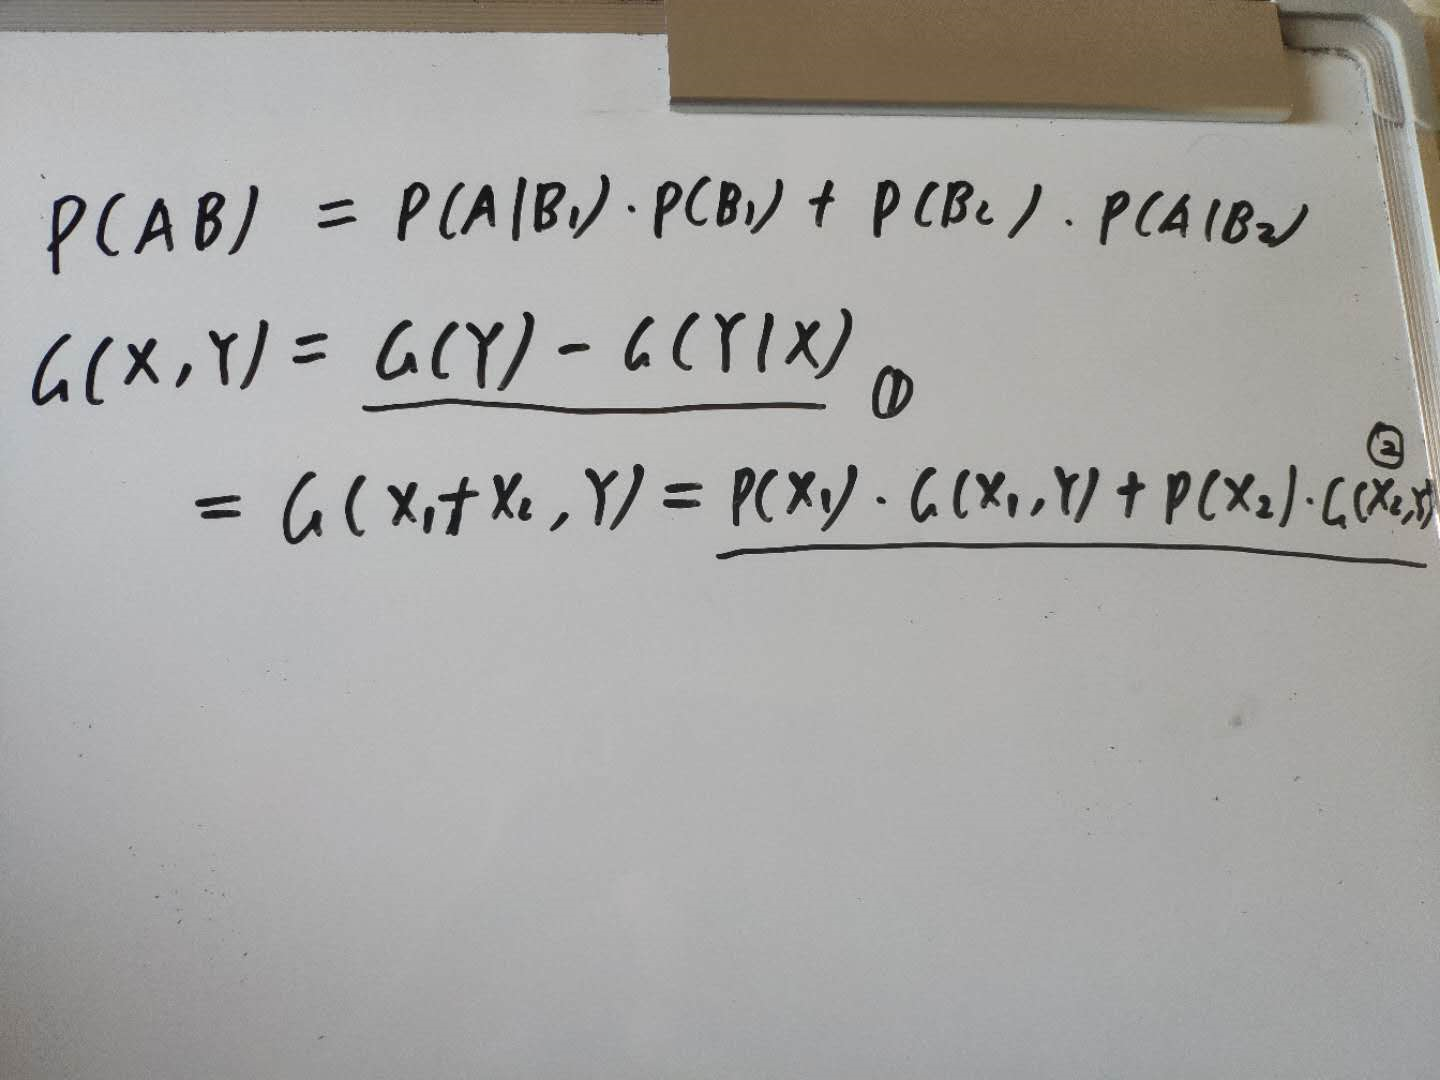 P(AB) = P(A|B₁)·P(B₁) + P(B₂)·P(A|B₂)
G(X,Y) = G(Y) - G(Y|X) ①
= G(X₁+X₂,Y) = P(X₁)·G(X₁,Y) + P(X₂)·G(X₂,Y) ②